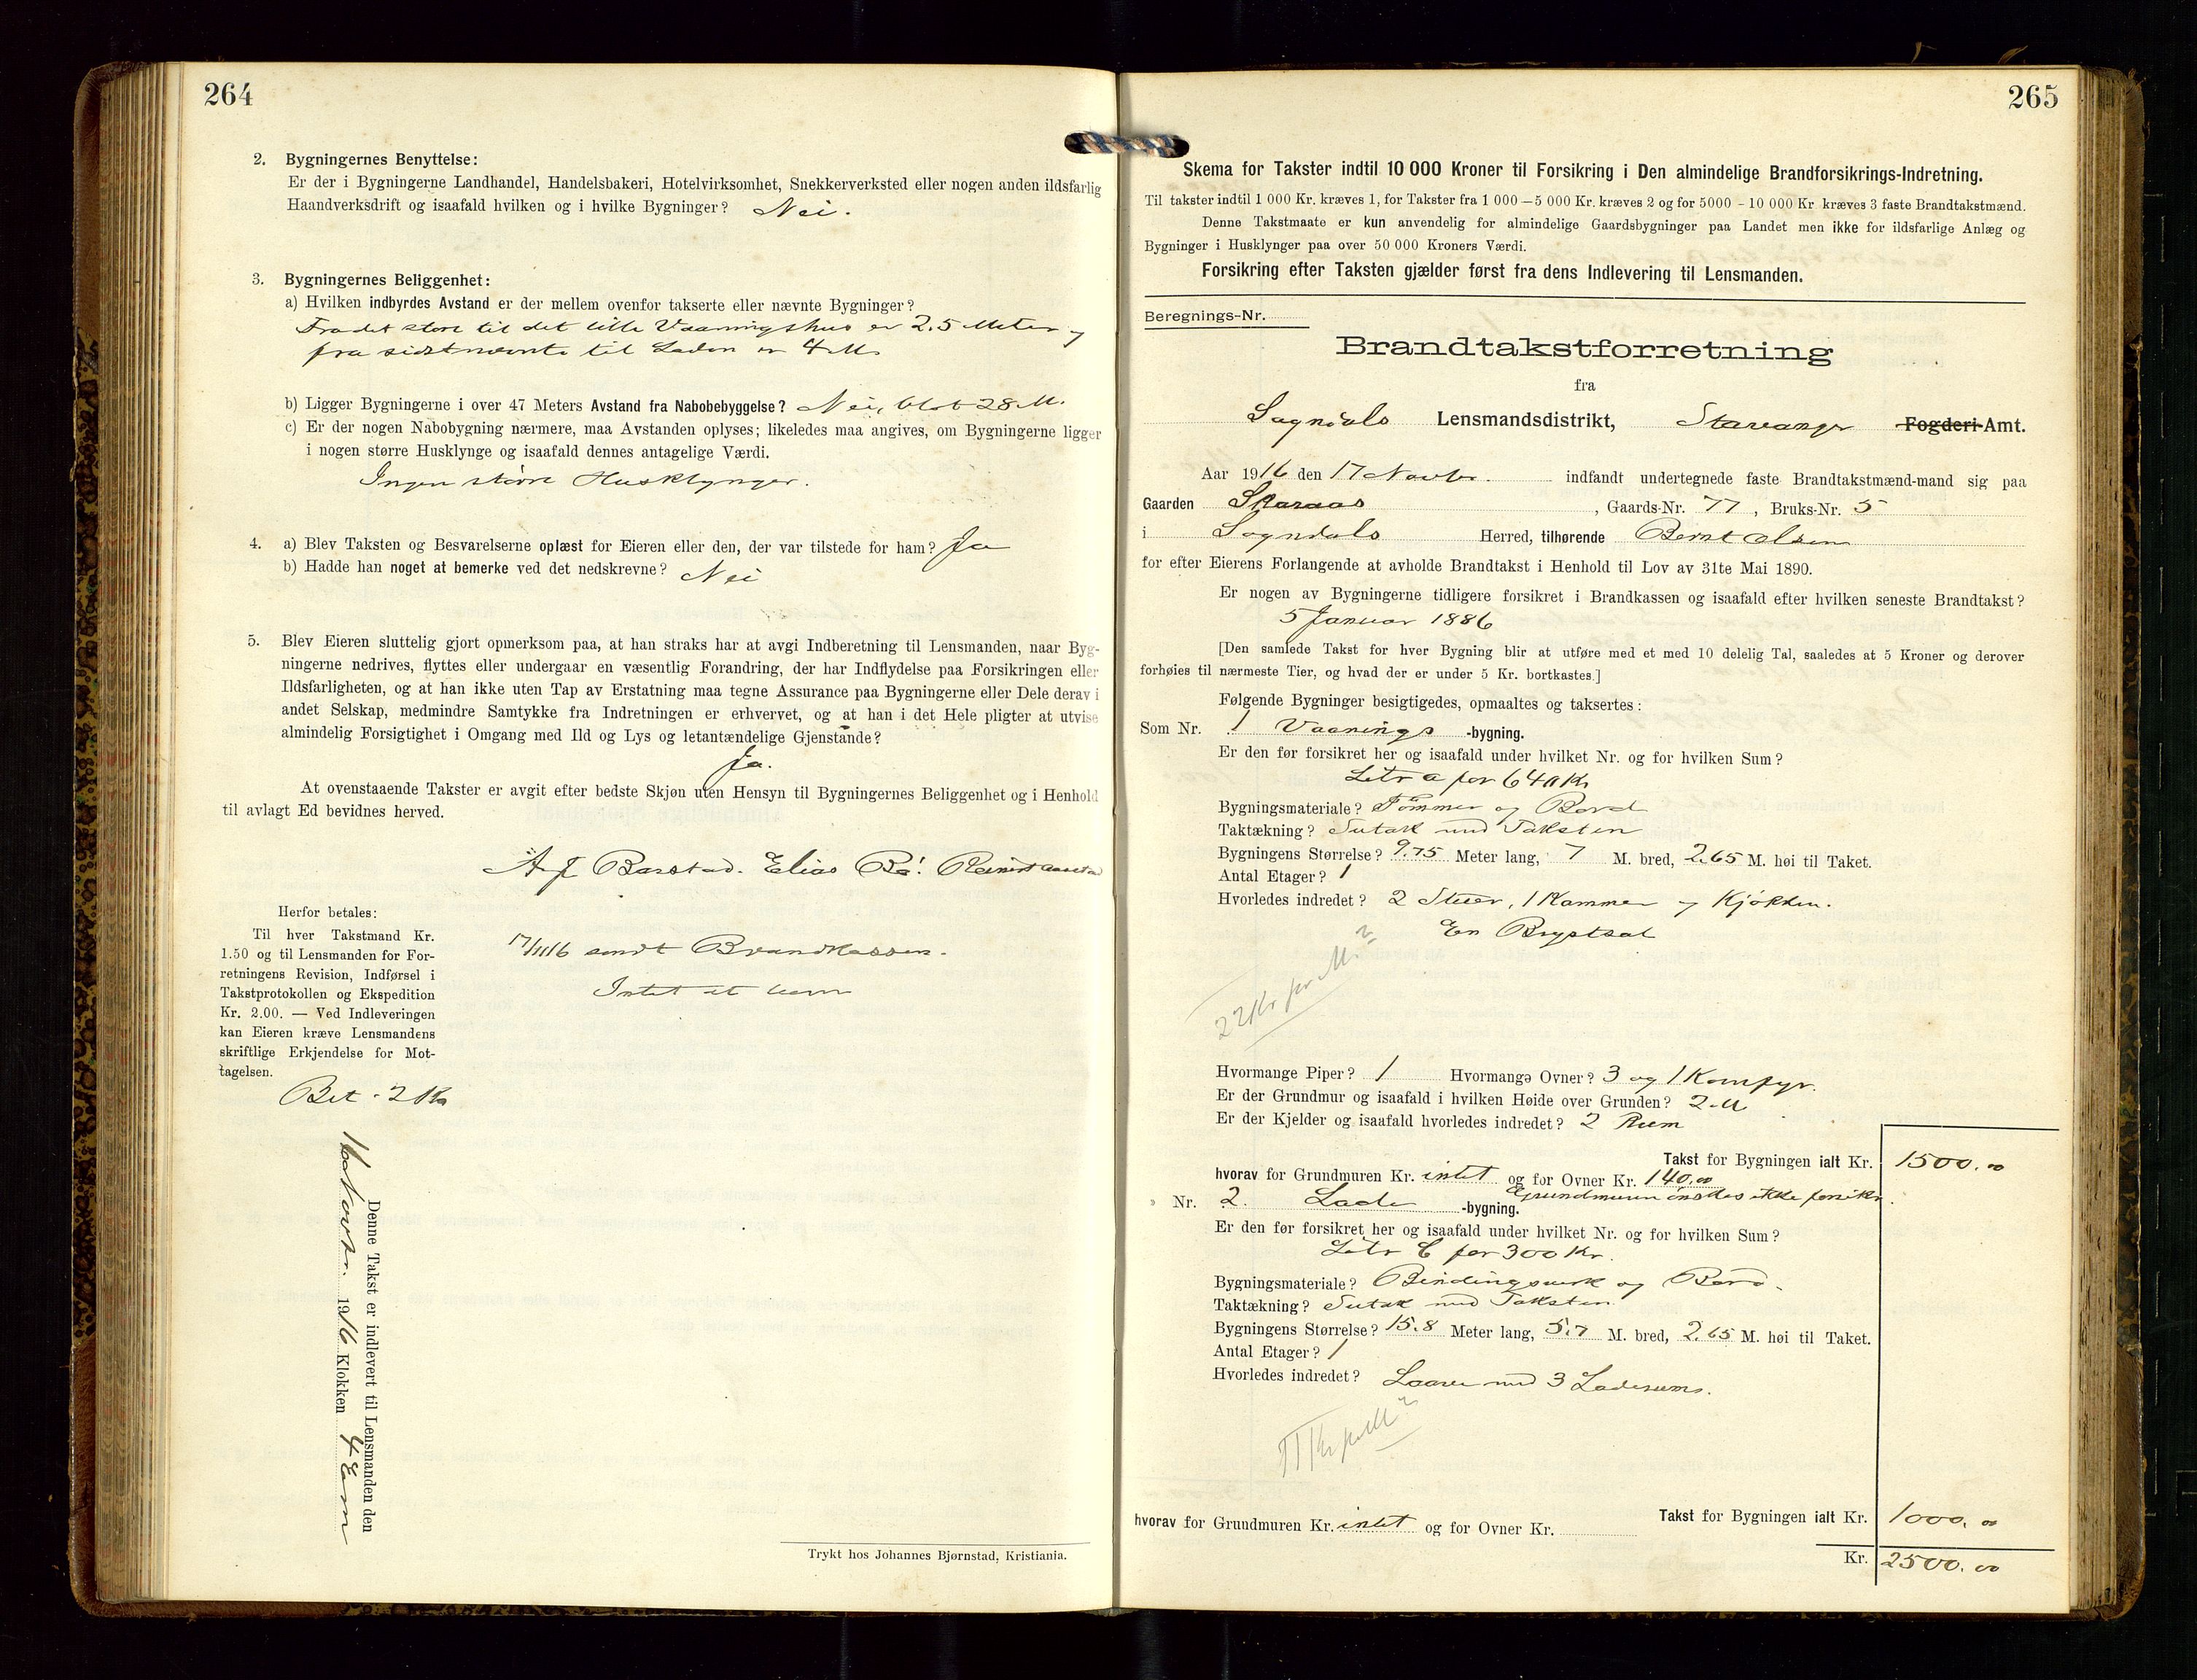 264
2. Bygningernes Benyttelse:
Er der i Bygningerne Landhandel, Handelsbakeri, Hotelvirksomhet, Snekkerverksted eller nogen anden ildsfarlig
Haandverksdrift og isaafald hvilken og i hvilke Bygninger? Nei.
3. Bygningernes Beliggenhet:
a) Hvilken indbyrdes Avstand er der mellem ovenfor takserte eller nævnte Bygninger?
Fra det store til det lille Vaaningshus er 2.5 Meter og
fra sidstnævnte til Laden er 4 M.
b) Ligger Bygningerne i over 47 Meters Avstand fra Nabobebyggelse? Nei, blot 28 M.
c) Er der nogen Nabobygning nærmere, maa Avstanden oplyses; likeledes maa angives, om Bygningerne ligger
i nogen større Husklynge og isaafald dennes antagelige Værdi.
Ingen større Husklynger.
4. a) Blev Taksten og Besvarelserne oplæst for Eieren eller den, der var tilstede for ham? Ja
b) Hadde han noget at bemerke ved det nedskrevne? Nei
5. Blev Eieren sluttelig gjort opmerksom paa, at han straks har at avgi Indberetning til Lensmanden, naar Byg-
ningerne nedrives, flyttes eller undergaar en væsentlig Forandring, der har Indflydelse paa Forsikringen eller
Ildsfarligheten, og at han ikke uten Tap av Erstatning maa tegne Assurance paa Bygningerne eller Dele derav i
andet Selskap, medmindre Samtykke fra Indretningen er erhvervet, og at han i det Hele pligter at utvise
almindelig Forsigtighet i Omgang med Ild og Lys og letantændelige Gjenstande?
Ja.
At ovenstaaende Takster er avgit efter bedste Skjøn uten Hensyn til Bygningernes Beliggenhet og i Henhold
til avlagt Ed bevidnes herved.
Barstad. Elias Rø!
Herfor betales:
Til hver Takstmand Kr.
1.50 og til Lensmanden for For-
retningens Revision, Indførsel i
Takstprotokollen og Ekspedition
Kr. 2.00. — Ved Indleveringen
kan Eieren kræve Lensmandens
skriftlige Erkjendelse for Mot-
tagelsen.
17/11/16 sendt Brandkassen.
Intet at bem
Bet. 2 Kr
Denne Takst er indlevert til Lensmanden den
Novbr. 1916 Klokken 4 Em
Trykt hos Johannes Bjørnstad, Kristiania.
265
Skema for Takster indtil 10 000 Kroner til Forsikring i Den almindelige Brandforsikrings-Indretning.
Til takster indtil 1 000 Kr. kræves 1, for Takster fra 1 000—5 000 Kr. kræves 2 og for 5000 - 10 000 Kr kræves 3 faste Brandtakstmænd.
Denne Takstmaate er kun anvendelig for almindelige Gaardsbygninger paa Landet men ikke for ildsfarlige Anlæg og
Bygninger i Husklynger paa over 50 000 Kroners Værdi.
Forsikring efter Taksten gjælder først fra dens Indlevering til Lensmanden.
Beregnings-Nr.
Brandtakstforretning
fra
Sogndals Lensmandsdistrikt, Stavanger Fogderi-Amt.
Aar 1916 den 17 Novbr. indfandt undertegnede faste Brandtakstmænd-mand sig paa
Gaarden Skaraas, Gaards-Nr. 77, Bruks-Nr. 5
i Sogndals Herred, tilhørende Bernt Olsen
for efter Eierens Forlangende at avholde Brandtakst i Henhold til Lov av 31te Mai 1890.
Er nogen av Bygningerne tidligere forsikret i Brandkassen og isaafald efter hvilken seneste Brandtakst?
5 Januar 1886
[Den samlede Takst for hver Bygning blir at utføre med et med 10 delelig Tal, saaledes at 5 Kroner og derover
forhøies til nærmeste Tier, og hvad der er under 5 Kr. bortkastes.]
Følgende Bygninger besigtigedes, opmaaltes og taksertes:
Som Nr. 1 Vaanings -bygning.
Er den før forsikret her og isaafald under hvilket Nr. og for hvilken Sum?
Litr a for 640 Kr
Bygningsmateriale? Tømmer og Bord
Taktækning? Sutak med Taksten
Bygningens Størrelse? 9.75 Meter lang, 7 M. bred, 2.65 M. høi til Taket.
Antal Etager? 1
Hvorledes indredet? 2 Stuer, 1 Kammer og Kjøkken.
En Brystsal
22 Kr pr M.²
Hvormange Piper? 1 Hvormange Ovner? 3 og 1 Komfyr.
Er der Grundmur og isaafald i hvilken Høide over Grunden? 2 M
Er der Kjelder og isaafald hvorledes indredet? 2 Rum
Takst for Bygningen ialt Kr. 1500.00
hvorav for Grundmuren Kr. intet og for Ovner Kr. 140.00
Grundmuren ønskes ikke forsikr.
» Nr. 2. Lade -bygning.
Er den før forsikret her og isaafald under hvilket Nr. og for hvilken Sum?
Litr C for 300 Kr.
Bygningsmateriale? Bindingsverk og Bord.
Taktækning? Sutak med Taksten
Bygningens Størrelse? 15.8 Meter lang, 5.7 M. bred, 2.65 M. høi til Taket.
Antal Etager? 1
Hvorledes indredet? Laave med 3 Laderums.
11 Kr pr M²
Takst for Bygningen ialt Kr. 1000.00
hvorav for Grundmuren Kr. intet og for Ovner Kr.
Kr. 2500.00